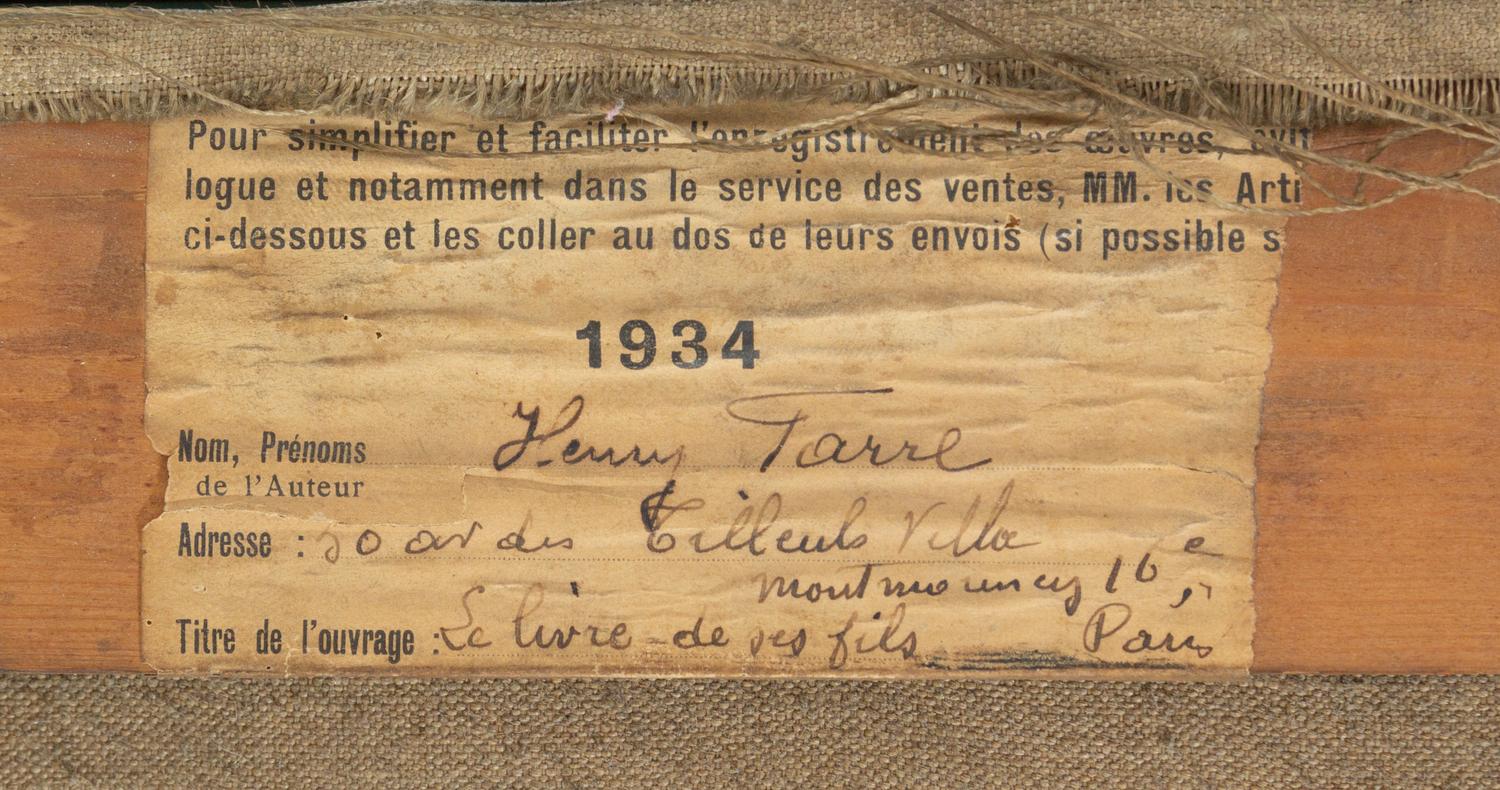 Pour simplifier et faciliter l'enregistrement des œuvres, évit
logue et notamment dans le service des ventes, MM. les Arti
ci-dessous et les coller au dos de leurs envois (si possible s
1934
Nom, Prénoms Henry Tarre
de l'Auteur
Adresse : av des Tilleuls Villa
montmorency 16e
Titre de l'ouvrage : Le livre de ses fils Paris